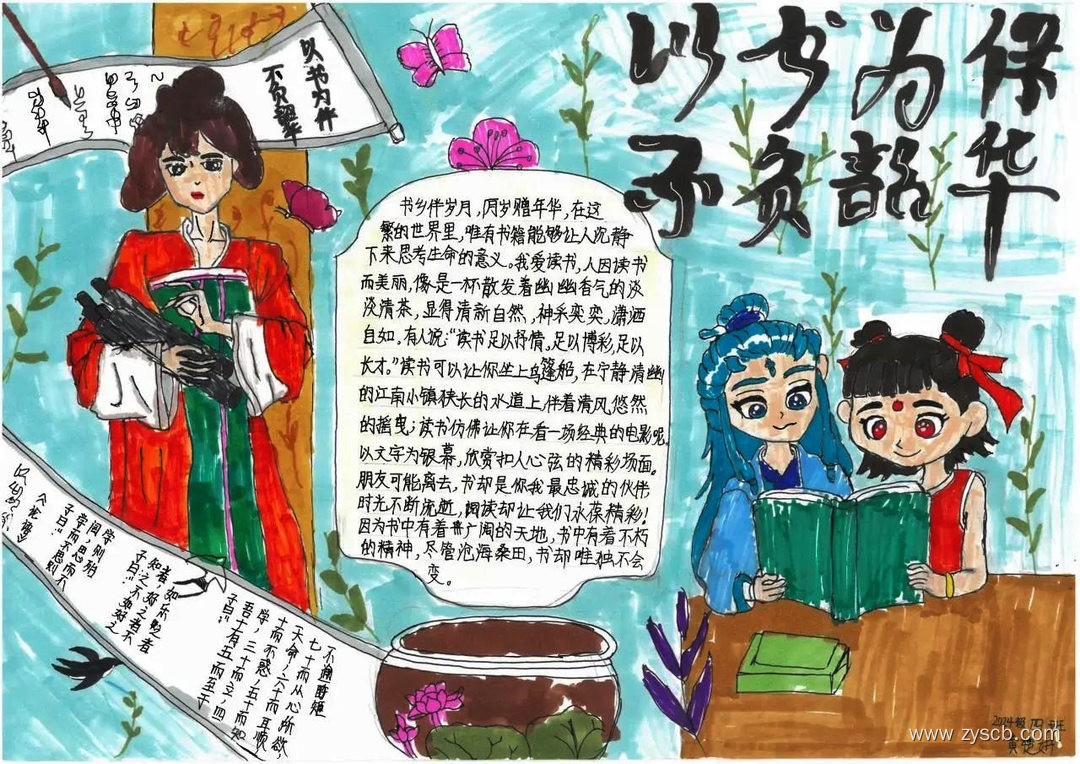 以书为保
不负韶华
以书为伴
不负韶华
书乡伴岁月,阅岁赠年华,在这
繁的世界里,唯有书籍能够让人沉静
下来思考生命的意义。我爱读书,人因读书
而美丽,像是一杯散发着幽幽香气的淡
淡清茶,显得清新自然,神采奕奕,潇洒
自如。有人说:“读书足以抒情,足以博彩,足以
长才。”读书可以让你坐上乌篷船,在宁静清幽
的江南小镇狭长的水道上,伴着清风,悠然
的摇曳;读书仿佛让你在看一场经典的电影呢,
以文字为银幕,欣赏扣人心弦的精彩场面。
朋友可能离去,书却是你我最忠诚的伙伴
时光不断流逝,阅读却让我们永葆精彩!
因为书中有着广阔的天地,书中有着不朽
的精神,尽管沧海桑田,书却唯独不会
变。
子曰:“
吾十有五而至于
学,三十而立,四
十而不惑,五十而知
天命,六十而耳顺,
七十而从心所欲,
不逾矩
子曰:“
知之者不如好之
者,好之者不
如乐之者
子曰:“
学而不思则
罔
《论语》
2024级
www.zyscb.com